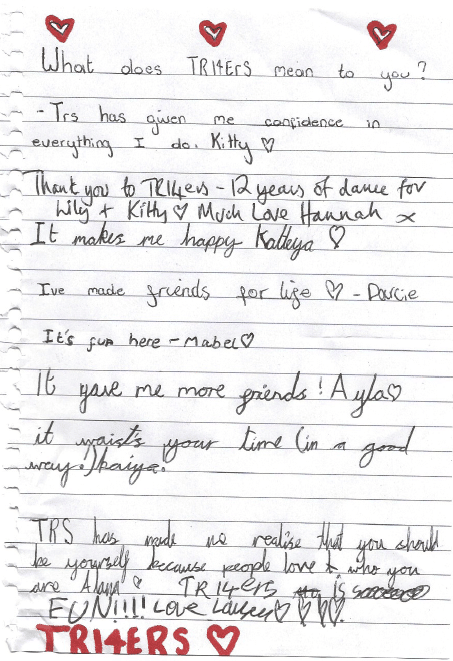 What does TRI4ERS mean to you?
- Trs has given me confidence in
everything I do. Kitty ♡
Thank you to TRI4ers - 12 years of dance for
Lily + Kitty ♡ Much Love Hannah x
It makes me happy Katteya ♡
Ive made friends for life ♡ - Darcie
It's fun here - Mabel ♡
It gave me more friends! Ayla ♡
it waists your time (in a good
way.) kaiya!
TRS has made me realise that you should
be yourself because people love who you
are Alana ♡ TRI4ers is
FUN!!!! Love ♡♡♡♡
TRI4ERS ♡